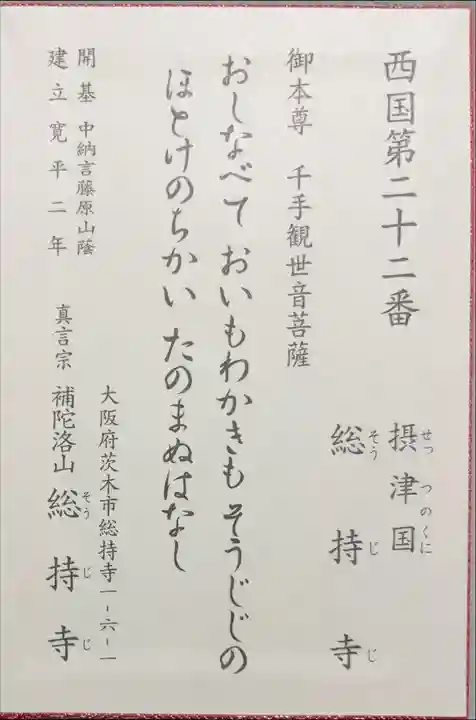 西国第二十二番
摂津国
せっつのくに
総持寺
そうじじ
御本尊　千手観世音菩薩
おしなべて おいもわかきも そうじじの
ほとけのちかい たのまぬはなし
開基 中納言藤原山蔭
建立寛平二年
大阪府茨木市総持寺一-六-一
真言宗 補陀洛山 総持寺
そうじじ